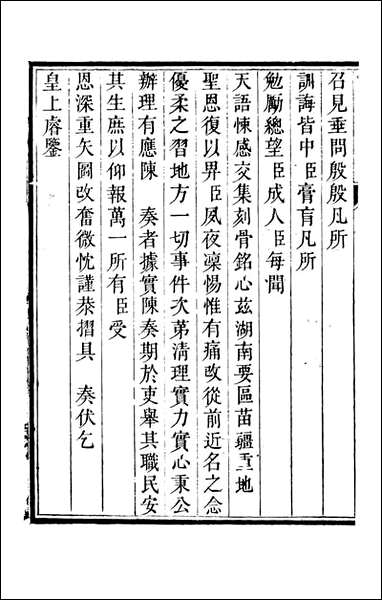 召見垂問殷殷凡所
訓誨皆中臣膏肓凡所
勉勵總望臣成人臣每聞
天語悚感交集刻骨銘心茲湖南要區苗疆重地
聖恩復以畀臣夙夜凜惕惟有痛改從前近名之念
優柔之習地方一切事件次第清理實力實心秉公
辦理有應陳　奏者據實陳奏期於吏舉其職民安
其生庶以仰報萬一所有臣受
恩深重矢圖改奮微忱謹恭摺具　奏伏乞
皇上睿鑒